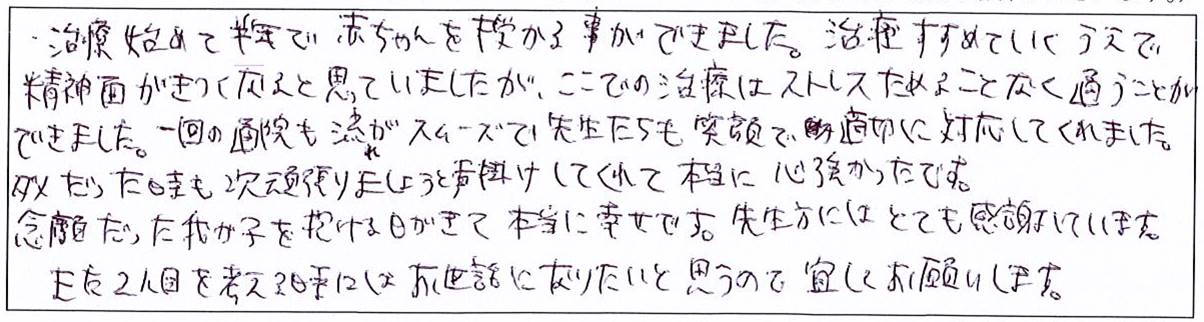 治療始めて半年で赤ちゃんを授かる事ができました。治療すすめていくうえで
精神面がきつくなると思っていましたが、ここでの治療はストレスためることなく通うことが
できました。一回の通院も流れがスムーズで先生たちも笑顔で適切に対応してくれました。
ダメだった時も次頑張りましょうと声掛けしてくれて本当に心強かったです。
念願だった我が子を抱ける日がきて本当に幸せです。先生方にはとても感謝しています。
また2人目を考える時にはお世話になりたいと思うので宜しくお願いします。